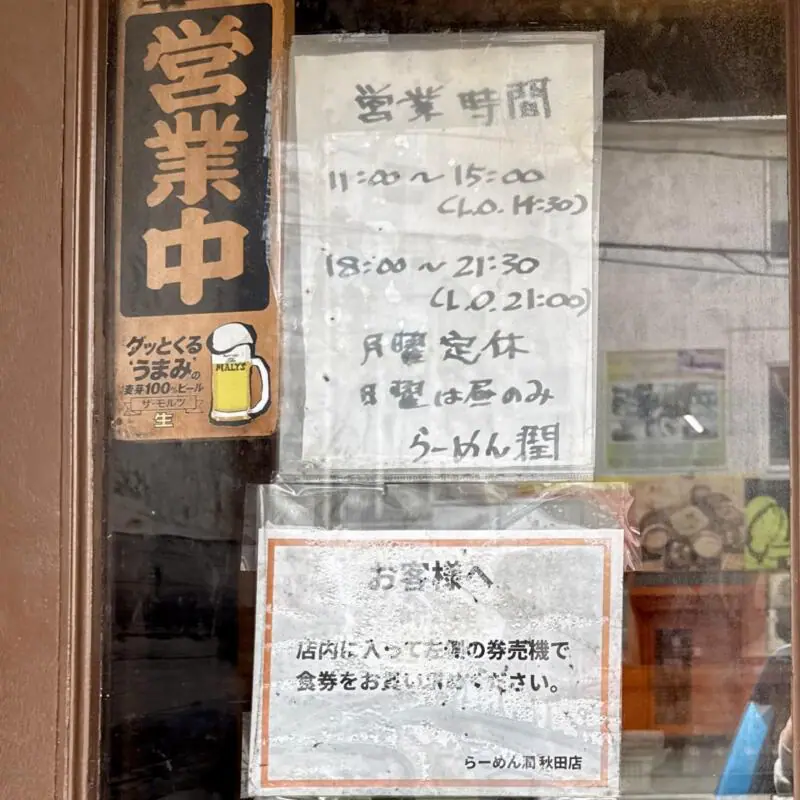 営業中
グッとくる
うまみの
麦芽100%ビール
ザ・モルツ
生
MALT'S
営業時間
11:00～15:00
(L.O. 14:30)
18:00～21:30
(L.O. 21:00)
月曜定休
日曜は昼のみ
らーめん潤
お客様へ
店内に入って左側の券売機で
食券をお買い求めください。
らーめん潤 秋田店